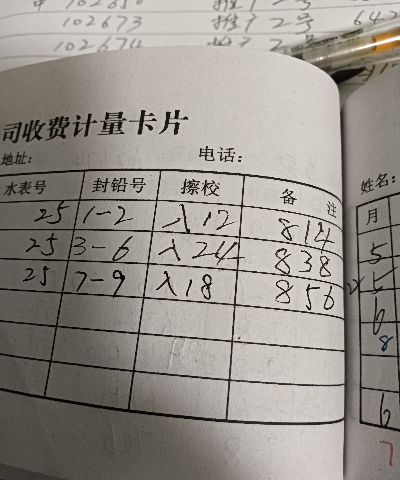 102673
推广2号
102674
司收费计量卡片
地址:
电话:
水表号 封铅号 擦校 备注
25 1-2 入12 814
25 3-6 入24 838
25 7-9 入18 856
姓名:
月
5
5
6
8
6
7